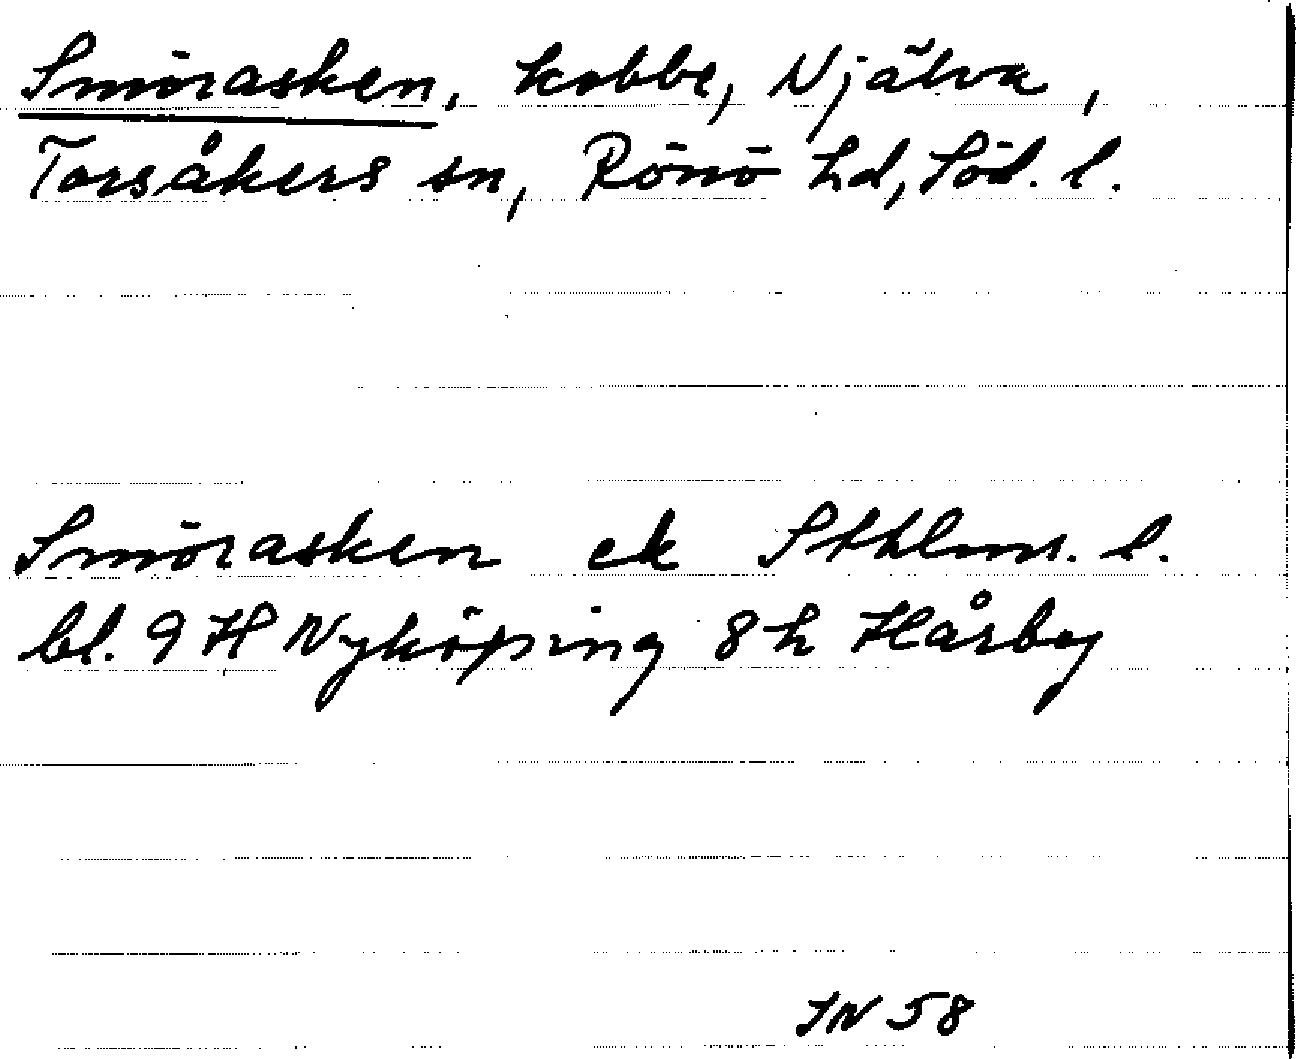 Smörasken, kobbe, Njälva,
Torsåkers sn, Rönö hd, Söd. l.
Smörasken ek Sthlms. l.
bl. 9 H Nyköping 8 h Hårby
IN 58